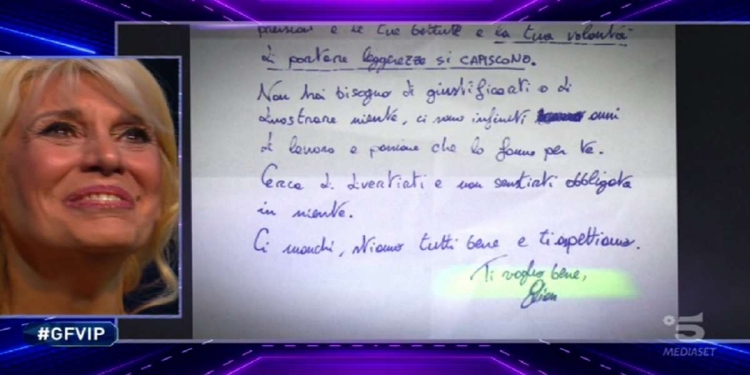 pressioni e le tue battute e la tua volontà
di portare leggerezza si CAPISCONO.
Non hai bisogno di giustificarti o di
dimostrare niente, ci sono infiniti anni
di lavoro e passione che lo fanno per te.
Cerca di divertirti e non sentirti obbligata
in niente.
Ci manchi, stiamo tutti bene e ti aspettiamo.
Ti voglio bene,
#GFVIP
5
MEDIASET